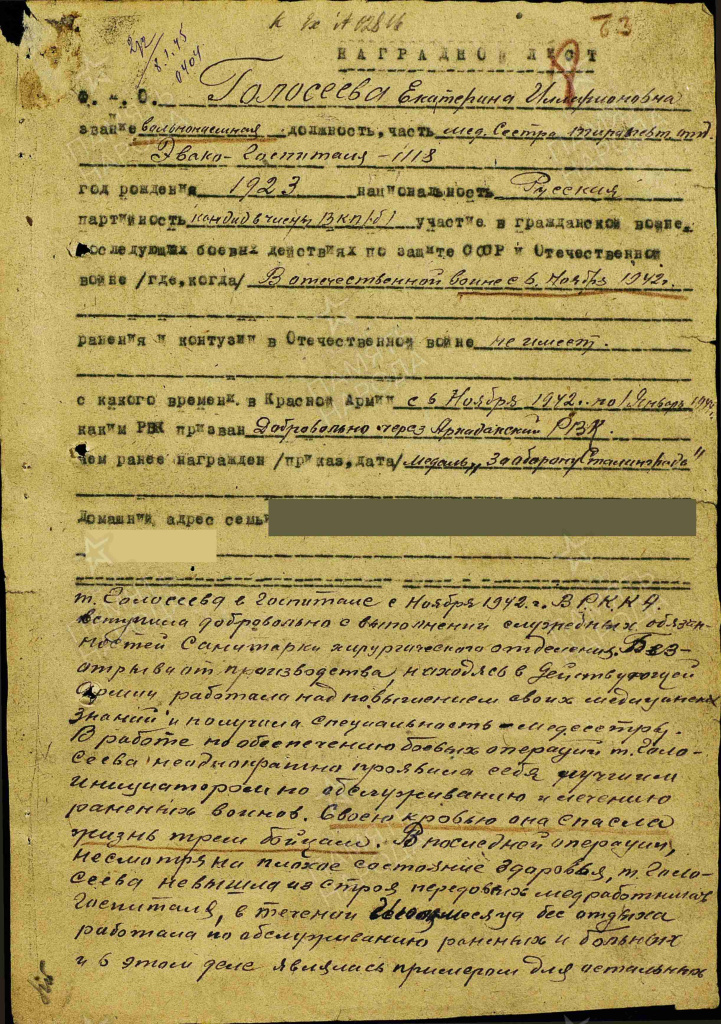 к Вх №
63
2/р
8.1.45
0404
НАГРАДНОЙ ЛИСТ
Ф. И. О. Голосеева Екатерина Илларионовна
звание вольнонаемная должность, часть мед. Сестра
Эвако-Госпиталя - 1118
год рождения 1923 национальность Русская
партийность кандид. в члены ВКП/б/ участие в гражданской войне,
последующих боевых действиях по защите СССР и Отечественной
войне /где, когда/ В отечественной войне с 6 Ноября 1942 г.
ранения и контузии в Отечественной войне не имеет.
с какого времени в Красной Армии с 6 Ноября 1942. по 1 Январь
каким РВК призван Добровольно через Аркадакский РВК.
чем ранее награжден /приказ, дата/ медаль „За оборону Сталинграда"
Домашний адрес семьи
т. Голосеева в Госпитале с Ноября 1942 г. В Р.К.К.А.
вступила добровольно с выполнении служебных обязан-
ностей Санитарки хирургического отделения. Без-
отрыва от производства, находясь в действующей
Армии, работала над повышением своих медицинских
знаний и получила специальность - медсестры.
В работе по обеспечению боевых операций т. Голо-
сеева неоднократно проявила себя лучшим
инициатором по обслуживанию и лечению
раненых воинов. Своею кровью она спасла
жизнь трем бойцам. В последней операции,
несмотря на плохое состояние здоровья, т. Голо-
сеева не вышла из строя передовых медработников
Госпиталя, в течении месяца без отдыха
работала по обслуживанию раненых и больных
и в этом деле являлась примером для остальных